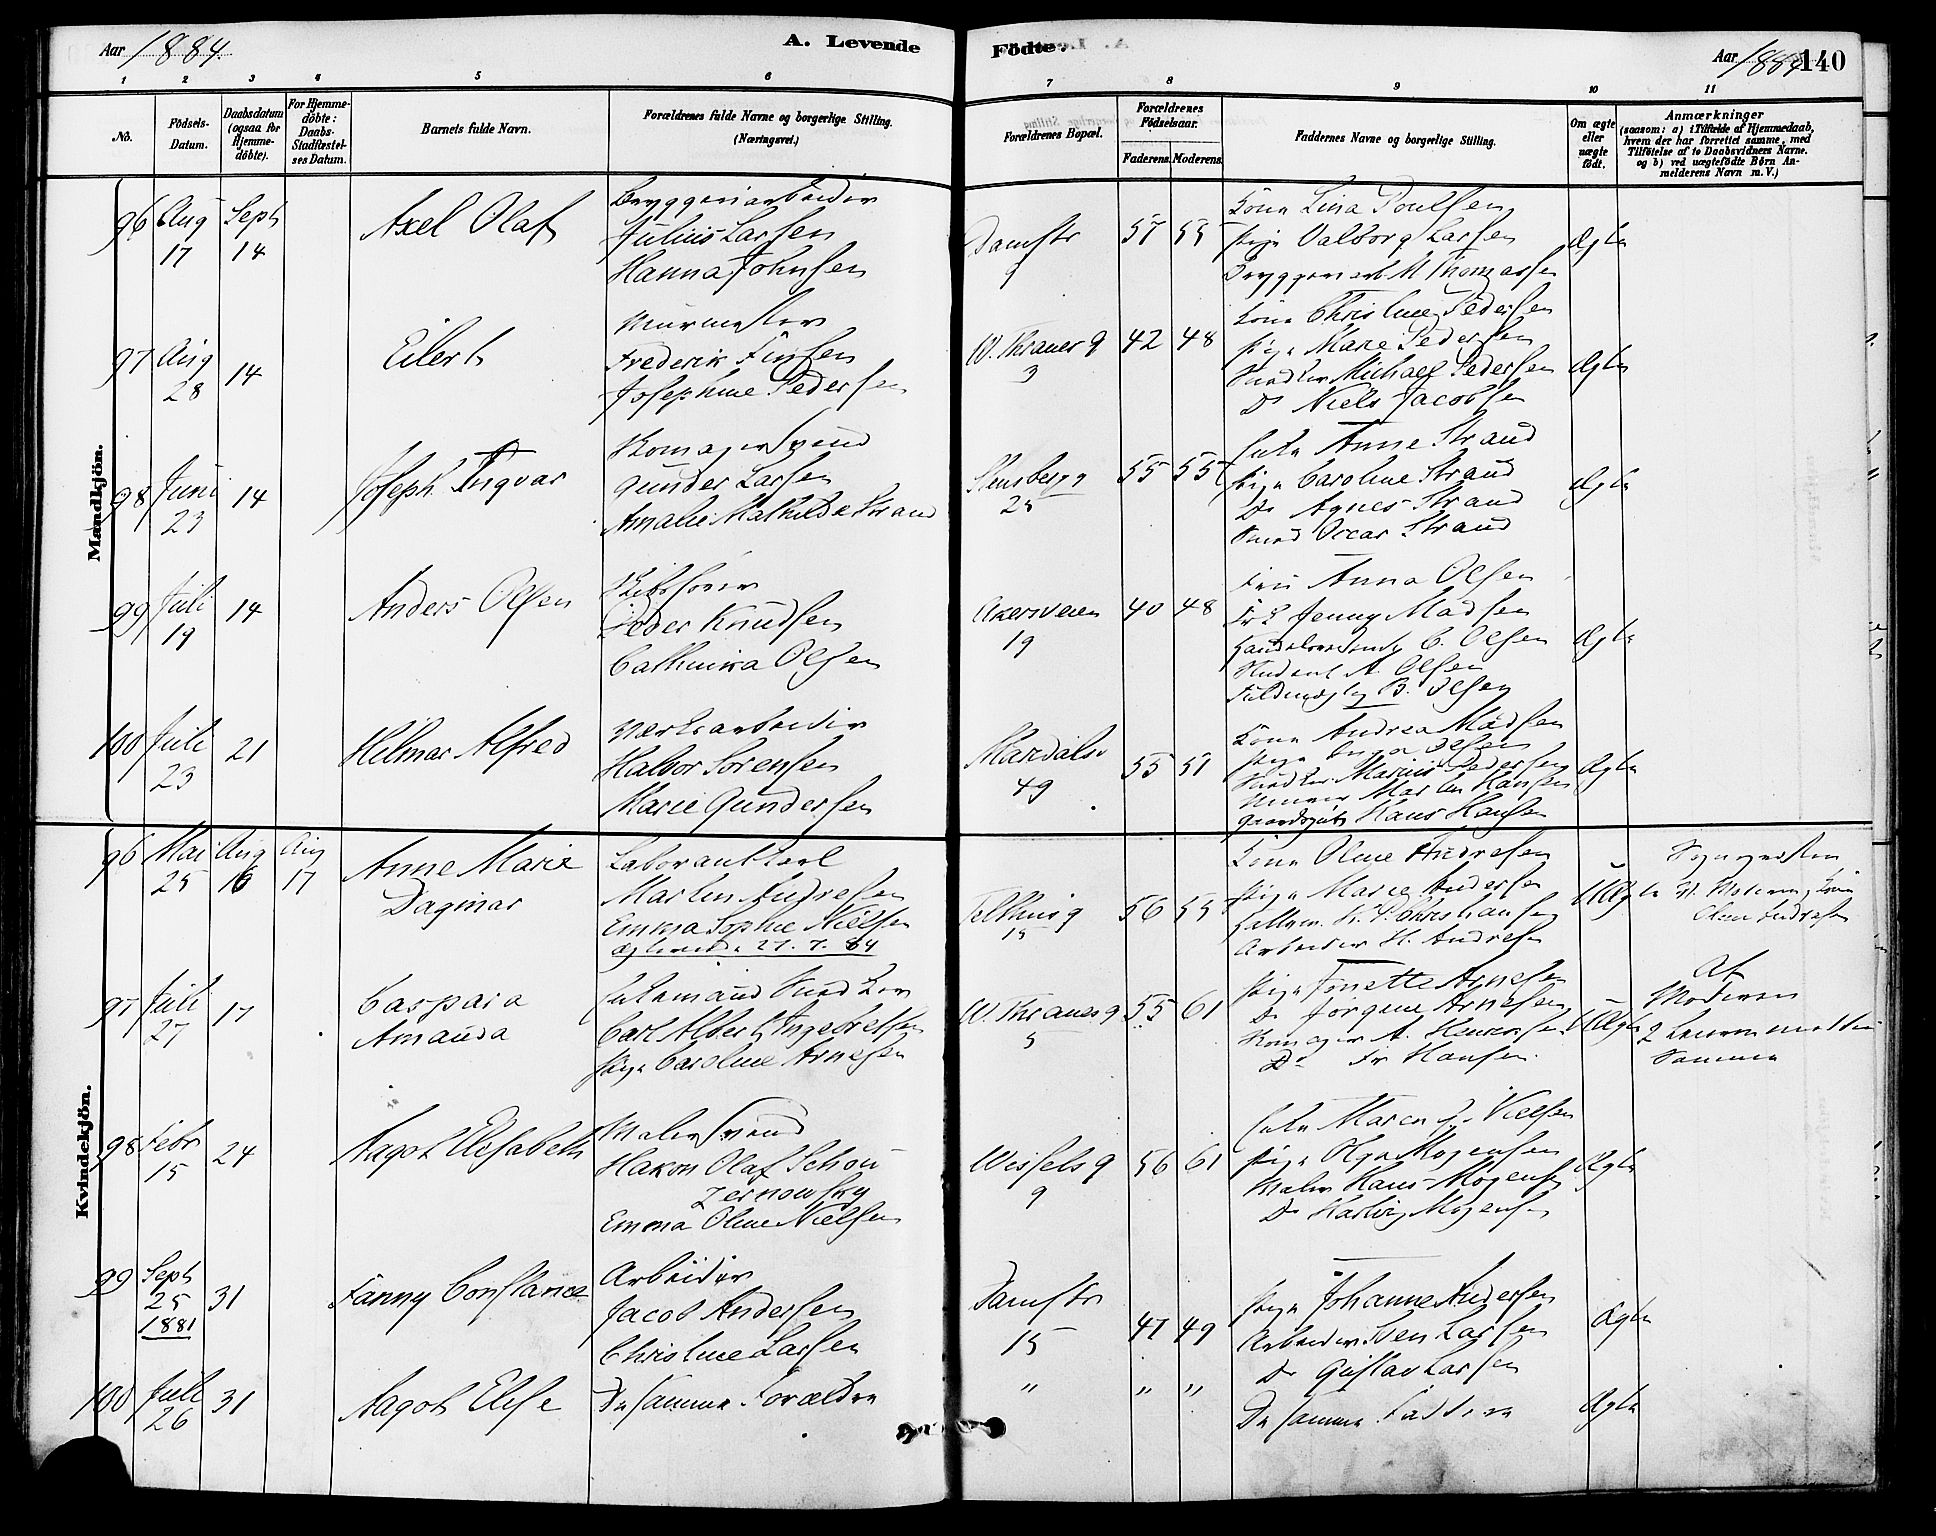 Aar 1884.
A. Levende
Födte.
Aar 1884
140
1 2 3 4 5 6 7 8 9 10 11
No.
Födsels-
Datum.
Daabsdatum
(ogsaa for
Hjemme-
döbte).
For Hjemme-
döbte:
Daabs-
Stadfæstel-
ses Datum.
Barnets fulde Navn.
Forældrenes fulde Navne og borgerlige Stilling.
(Næringsvei.)
Forældrenes Bopæl.
Forældrenes
Födselsaar.
Faderens. Moderens.
Faddernes Navne og borgerlige Stilling.
Om ægte
eller
uægte
födt.
Anmærkninger
(saasom: a) i Tilfælde af Hjemmedaab,
hvem der har forrettet samme, med
Tilföielse af to Daabsvidners Navne.
og b) ved uægtefödte Börn An-
melderens Navn m. V.)
Mandkjön.
96 Aug 17 Sept 14
Axel Olaf
Bryggeriarbeider
Julius Larsen
Hanna Johnsen
Damstr 9
57 55
Kone Lina Poulsen
Pige Valborg Larsen
Bryggeriarb M Thomassen
Ægte
97 Aug 28 14
Eilert
Murmester
Frederik Finsen
Josephine Pedersen
W. Thranes g 3
42 48
Kone Christine Pedersen
Pige Marie Pedersen
Snedker Michael Pedersen
Do Niels Jacobsen
Ægte
98 Juni 23 14
Joseph Ingvar
Skomagersvend
Gunder Larsen
Amalie Mathilde Strand
Stensberg g 25
55 55
Enke Anne Strand
Pige Caroline Strand
Do Agnes Strand
Snedk Oscar Strand
Ægte
99 Juli 19 14
Anders Olsen
Skibsförer
Peder Knudsen
Cathinka Olsen
Akersveien 19
40 48
Fru Anna Olsen
Frk Jenny Madsen
C. Olsen
Student A. Olsen
Fuldmægtig B. Olsen
Ægte
100 Juli 23 21
Hilmar Alfred
Værksarbeider
Halvor Sorensen
Marie Gundersen
Mardalsv 49
55 51
Kone Andrea Madsen
Pige Olsen
Snedker Marius Pedersen
Martin Hansen
Gaardsgut Hans Hansen
Ægte
Kvindekjön.
96 Mai 25 Aug 16 Aug 17
Anne Marie
Dagmar
Laborantkarl
Martin Andresen
Emma Sophie Nielsen
Ægteviede 27.7.84
Telthusg 15
56 55
Kone Oline Andresen
Pige Marie Andersen
Christiansen
Arbeider H. Andresen
Uægte
Oline Andresen
97 Juli 27 17
Caspara
Amanda
Snedker
Carl Albert Ingebretsen
Pige Caroline Arnesen
W. Thranes g 5
55 61
Pige Tonette Arnesen
Do Jörgine Arnesen
Skomager A. Henriksen
Do Fr Hansen.
Uægte
Af
Moderen
Samme
98 Febr 15 24
Aagot Elisabeth
Malersvend
Hakon Olaf Schou
Zernowsky
Emma Oline Nielsen
Wessels g 9
56 61
Enke Maren Nielsen
Pige Olga Mogensen
Maler Hans Mogensen
Do Hartvig Mogensen
Ægte
99 Sept 25 1881 31
Fanny Constance
Arbeider
Jacob Andersen
Christine Larsen
Damstr 15
47 49
Pige Johanne Andersen
Arbeider Sven Larsen
Do Gustav Larsen
Ægte
100 Juli 26 31
Aagot Elise
De samme Forældre
" " "
De samme Faddere
Ægte